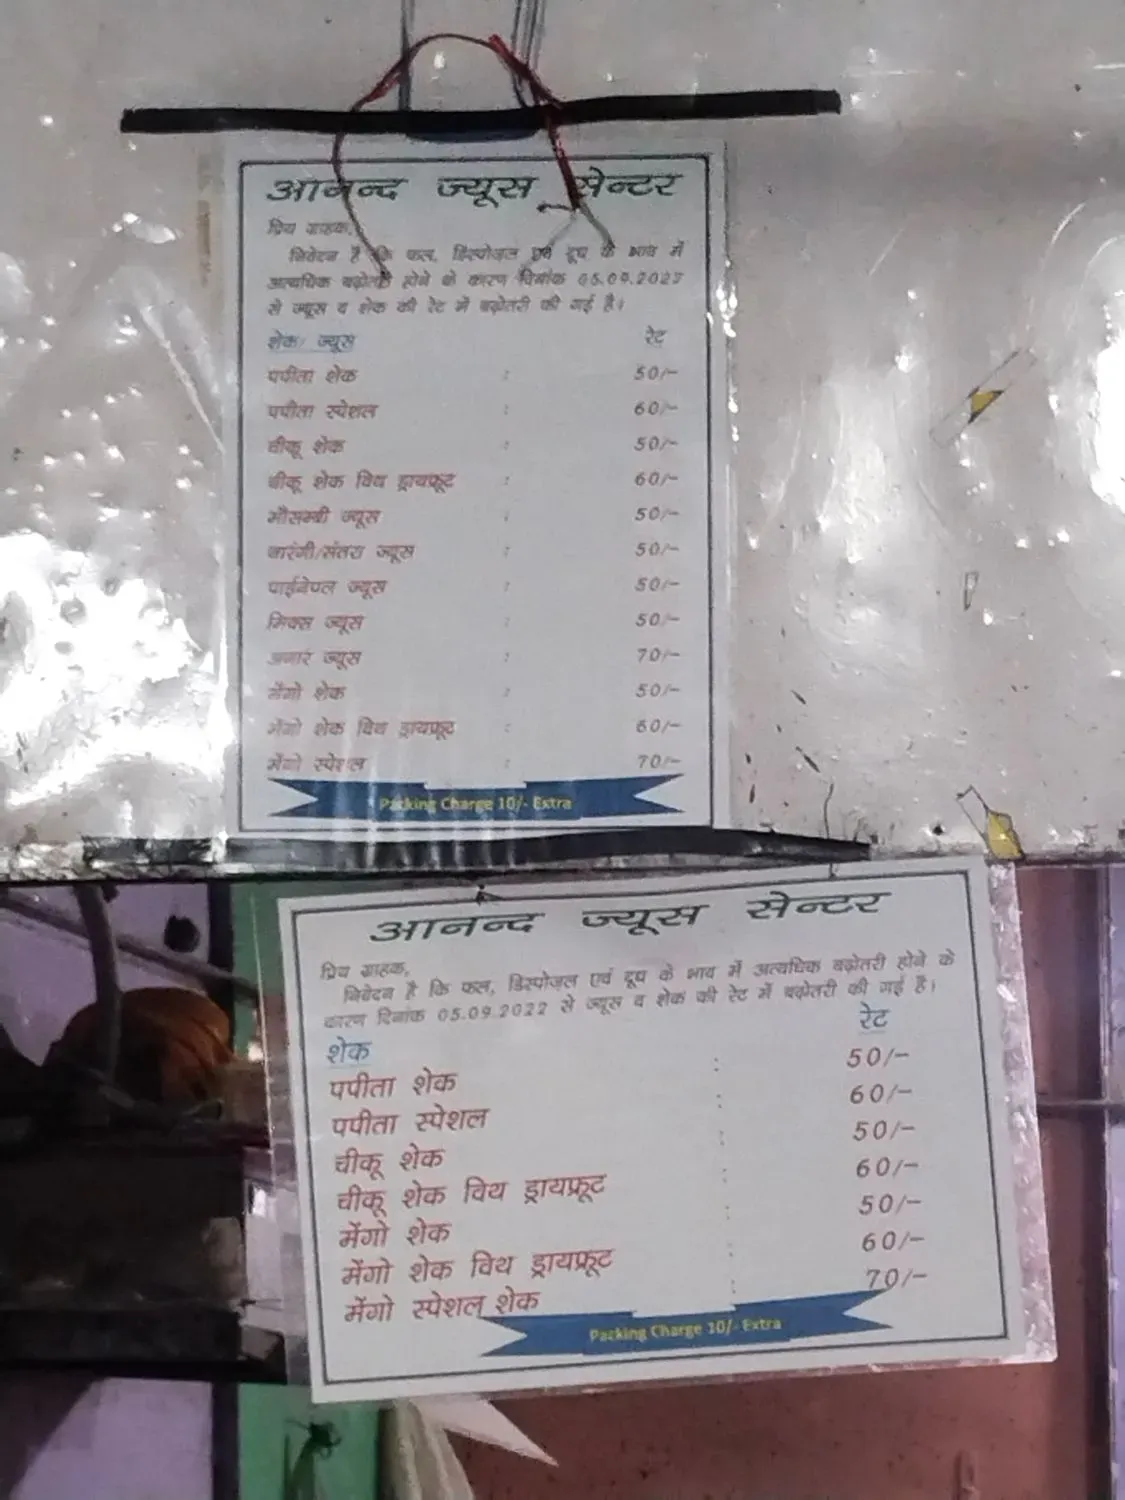 आनन्द ज्यूस सेन्टर
प्रिय ग्राहक,
निवेदन है कि फल, डिस्पोज़ल एवं दूध के भाव में
अत्यधिक बढ़ोतरी होने के कारण दिनांक 05.09.2022
से ज्यूस व शेक की रेट में बढ़ोतरी की गई है।
शेक/ ज्यूस रेट
पपीता शेक : 50/-
पपीता स्पेशल : 60/-
चीकू शेक : 50/-
चीकू शेक विथ ड्रायफ्रूट : 60/-
मौसम्बी ज्यूस : 50/-
नारंगी/संतरा ज्यूस : 50/-
पाईनेपल ज्यूस : 50/-
मिक्स ज्यूस : 50/-
अनार ज्यूस : 70/-
मेंगो शेक : 50/-
मेंगो शेक विथ ड्रायफ्रूट : 60/-
मेंगो स्पेशल : 70/-
Packing Charge 10/- Extra
आनन्द ज्यूस सेन्टर
प्रिय ग्राहक,
निवेदन है कि फल, डिस्पोज़ल एवं दूध के भाव में अत्यधिक बढ़ोतरी होने के
कारण दिनांक 05.09.2022 से ज्यूस व शेक की रेट में बढ़ोतरी की गई है।
शेक रेट
पपीता शेक : 50/-
पपीता स्पेशल : 60/-
चीकू शेक : 50/-
चीकू शेक विथ ड्रायफ्रूट : 60/-
मेंगो शेक : 50/-
मेंगो शेक विथ ड्रायफ्रूट : 60/-
मेंगो स्पेशल शेक : 70/-
Packing Charge 10/- Extra